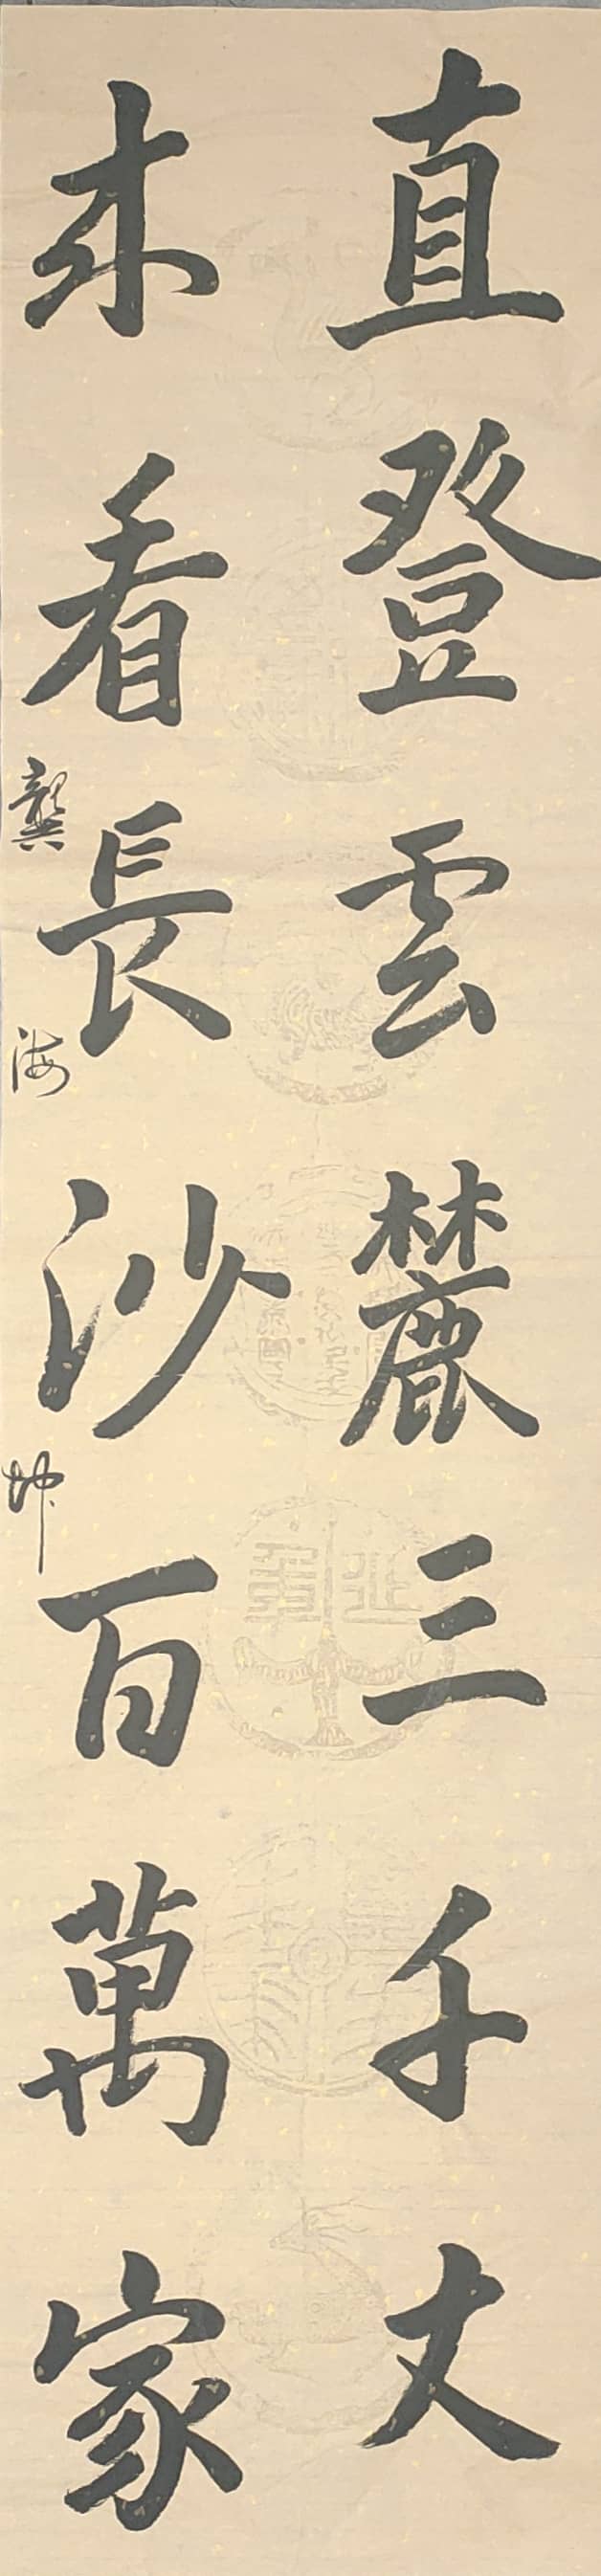 直登雲麓三千丈
来看長沙百萬家
龔海坤